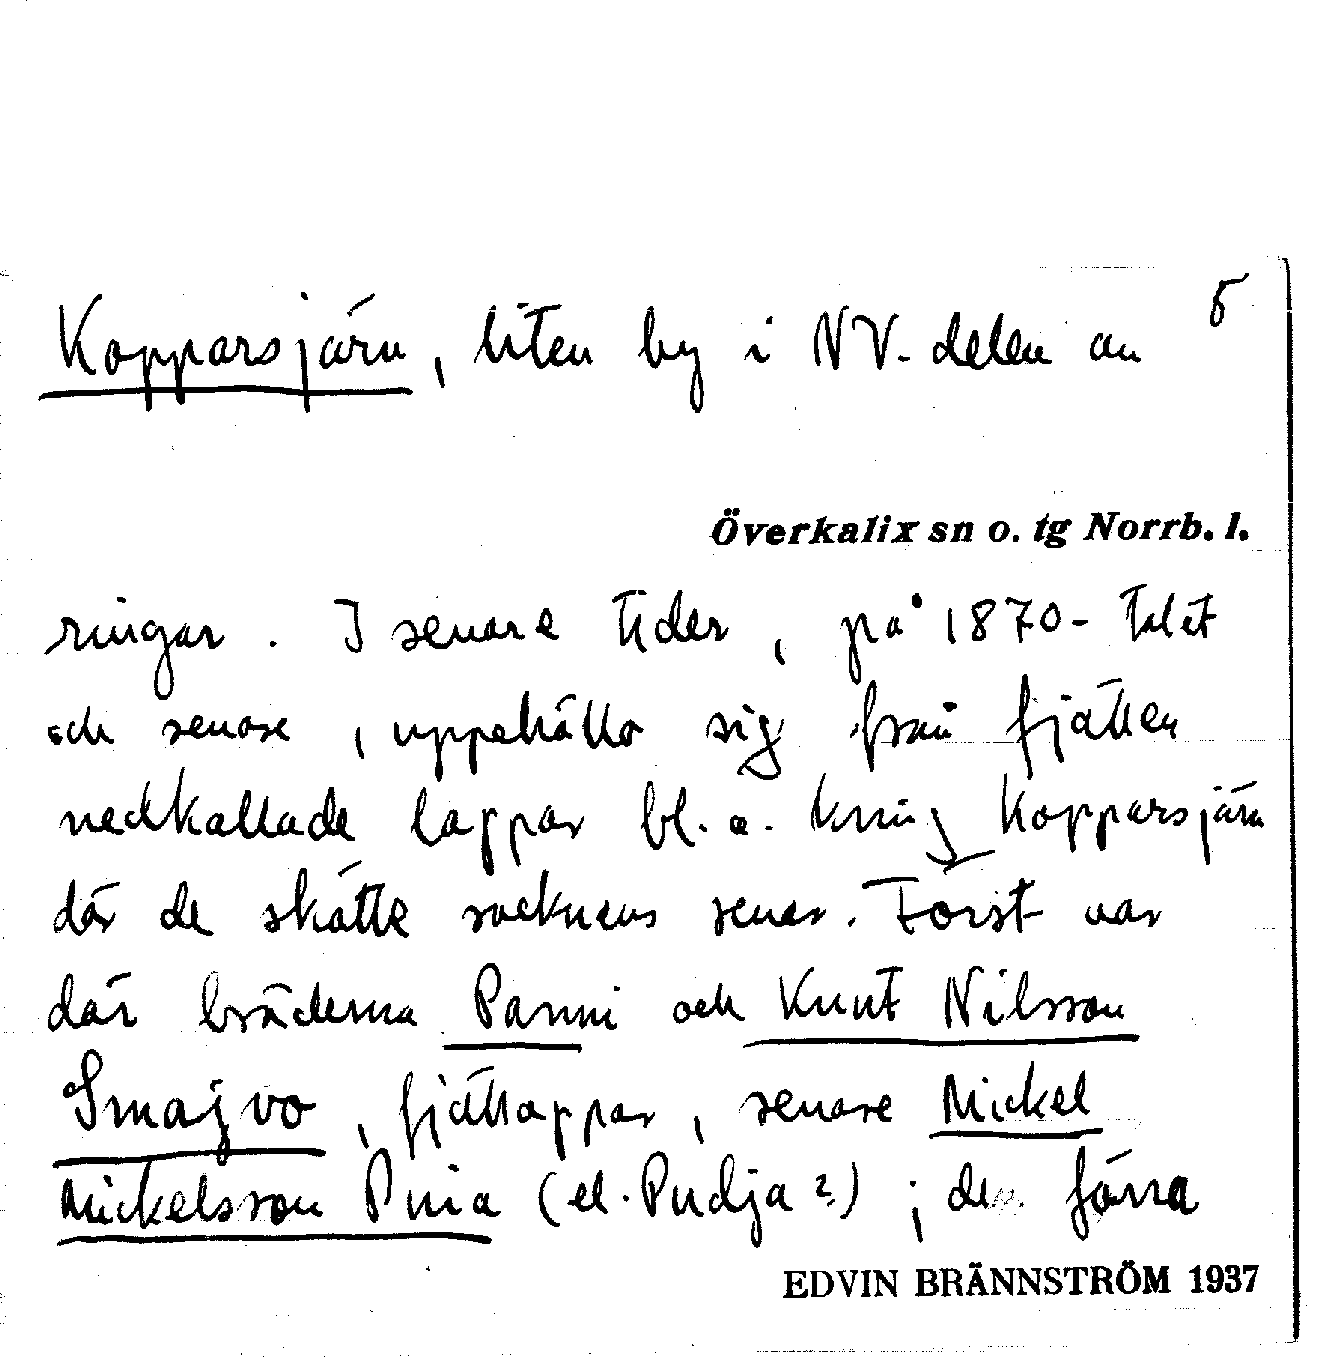 5
Kopparsjärn, liten by i NV-delen av
Överkalix sn o. tg Norrb. l.
ringar. I senare tider, på 1870-talet
och senare, uppehöllo sig från fjällen
nedkallade lappar bl. a. kring Kopparsjärn
där de skötte socknens renar. Först var
där bröderna Panni och Knut Nilsson
Smajvo, fjällappar, senare Mickel
Mickelsson Puia (el. Pudja?); den förra
EDVIN BRÄNNSTRÖM 1937